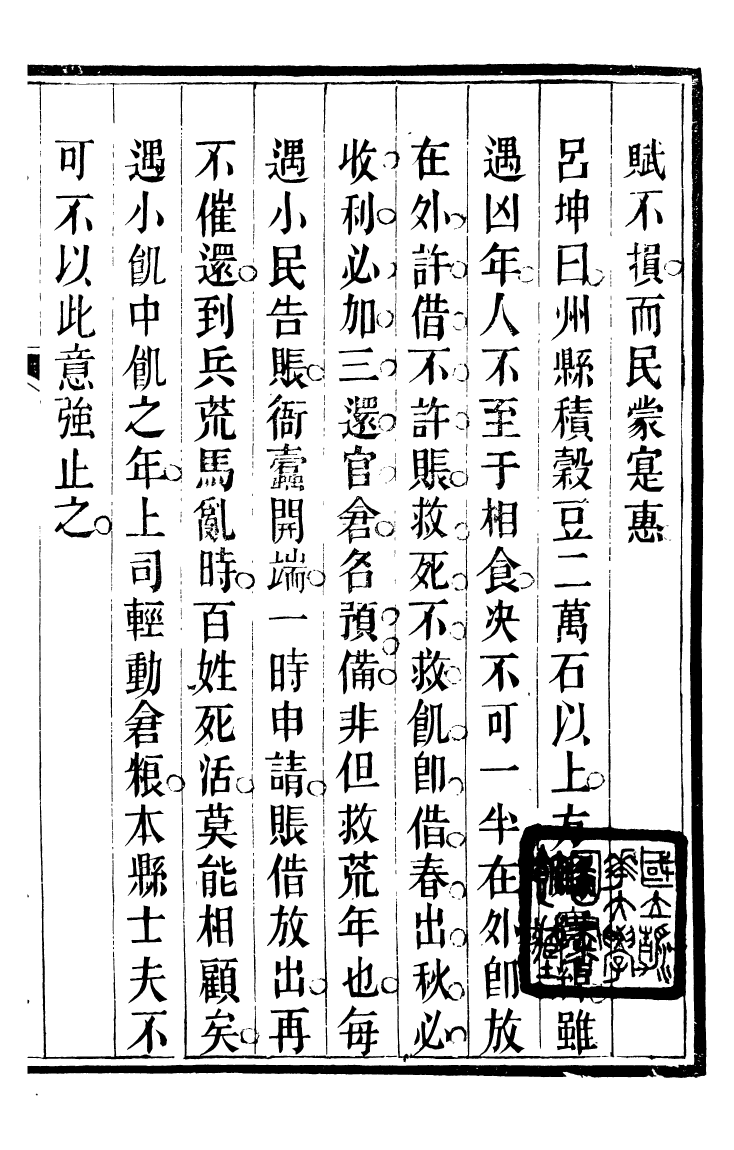 賦不損而民蒙寔惠
呂坤曰。州縣積穀豆二萬石以上。方雖
遇凶年。人不至于相食。决不可一半在外卽放
在外。許借不許賬。救死不救飢。卽借春出秋必
收。利必加三。還官倉。名預備。非但救荒年也。每
遇小民告賬。衙蠹開端。一時申請。賬借放出。再
不催還。到兵荒馬亂時。百姓死活。莫能相顧矣。
遇小飢中飢之年。上司輕動倉粮。本縣士夫不
可不以此意強止之。
國立清
華大學